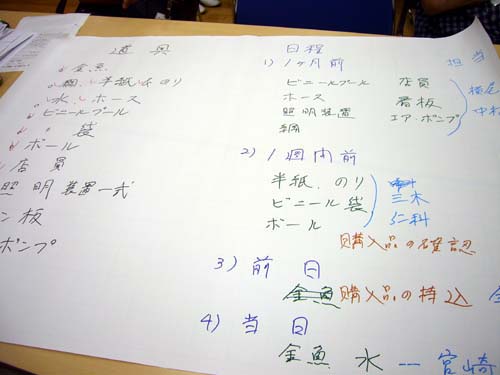 道具
金魚
網と半紙とのり
水とホース
ビニールプール
〃 袋
ボール
店員
照明装置一式
ン板
ポンプ
日程
担当
1) 1ヶ月前
ビニールプール 店員
ホース 看板
照明装置 エア・ポンプ
網
中村
2) 1週間前
半紙、のり
ビニール袋 三木
ボール 仁科
購入品の確認
3) 前日
金魚 購入品の持込
4) 当日
金魚 水 --- 宮崎